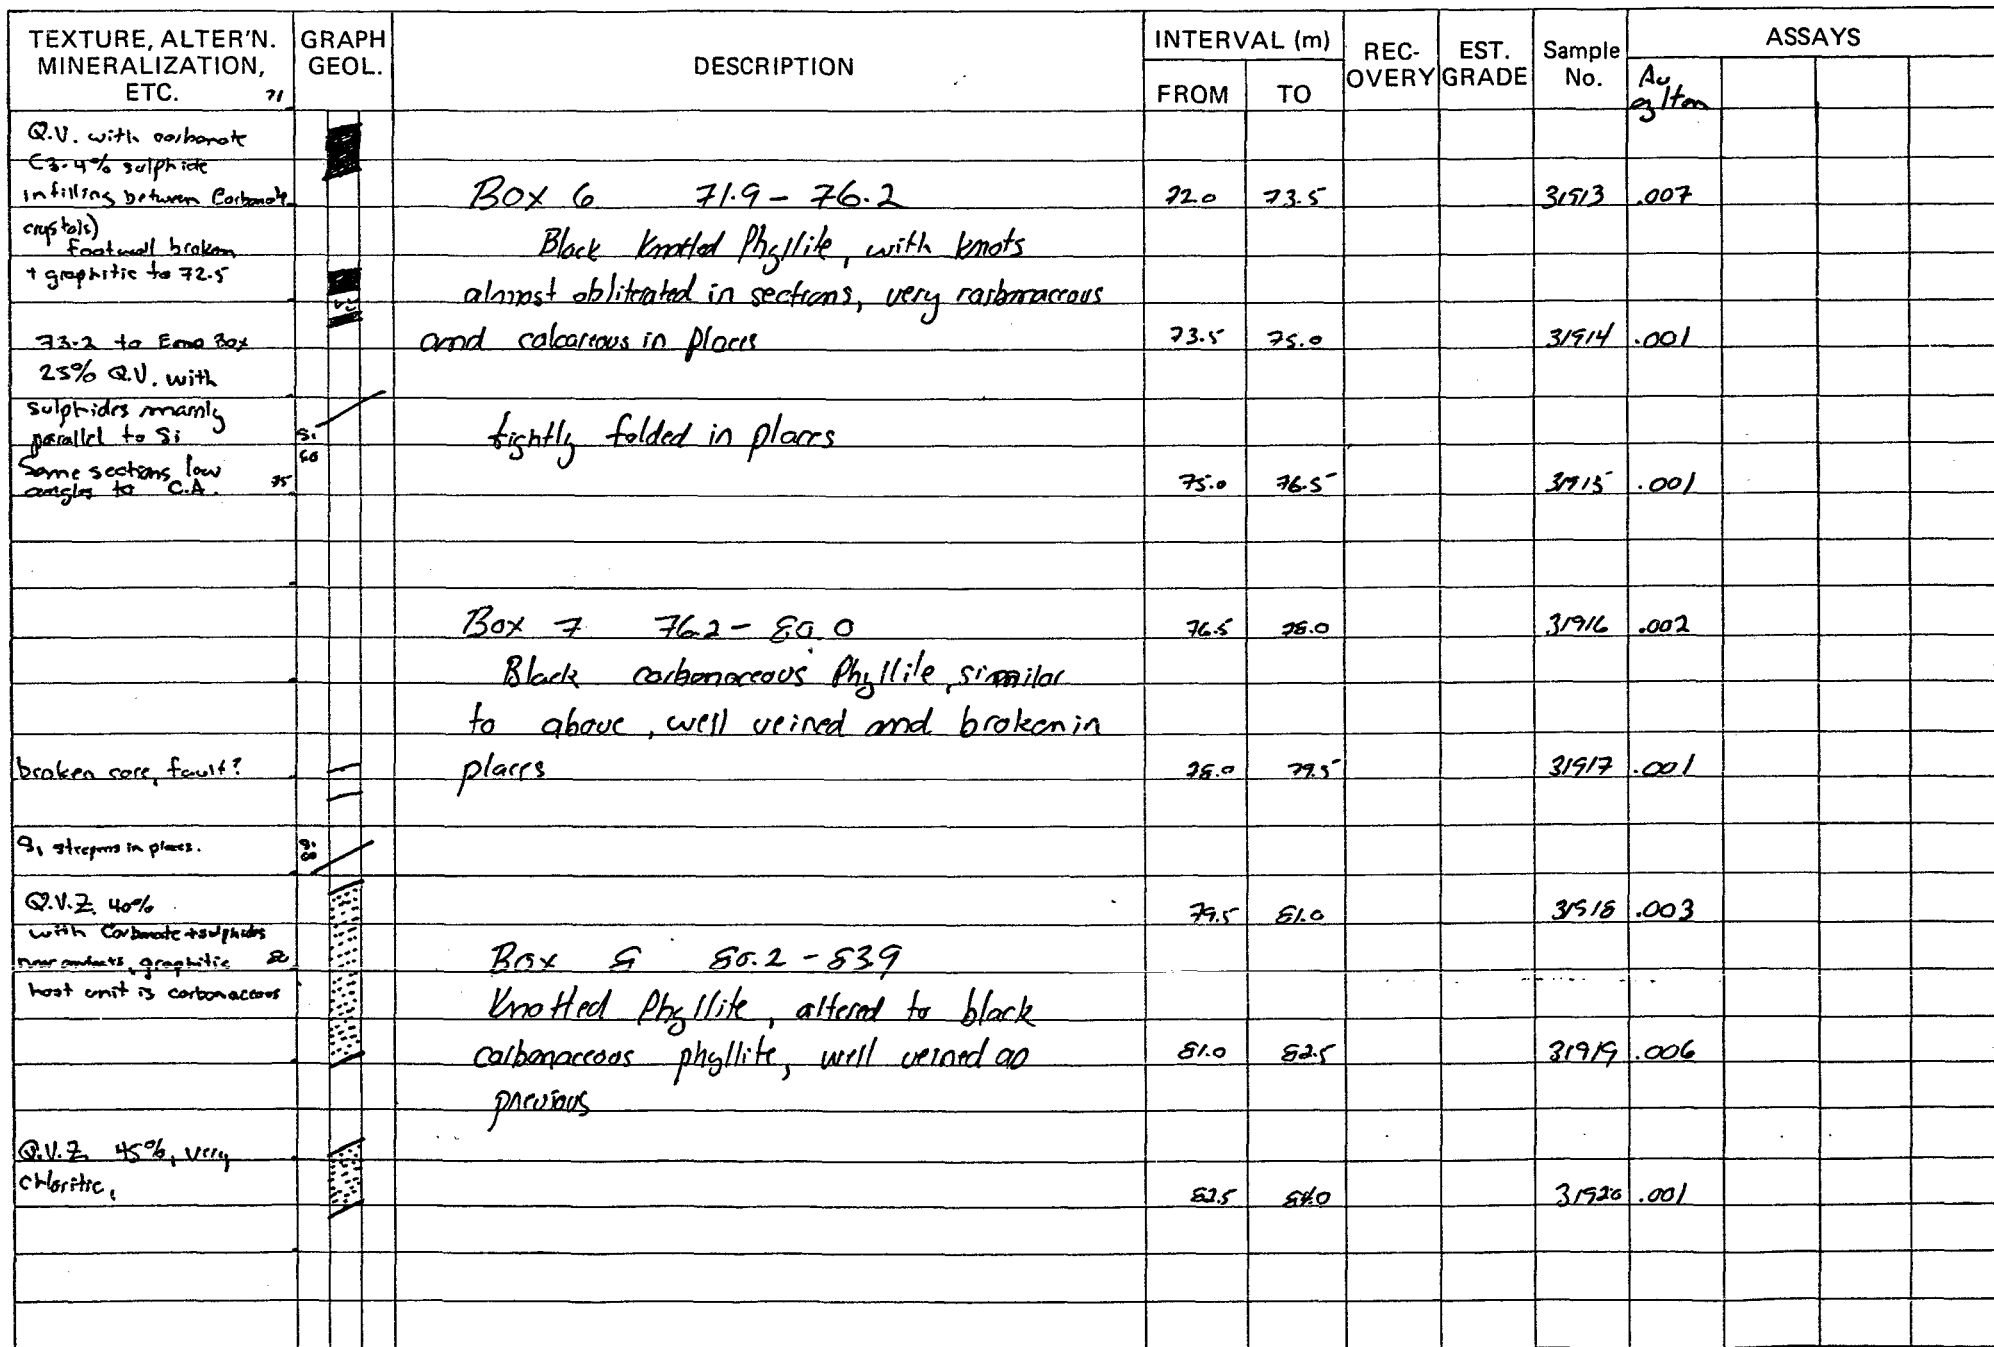 TEXTURE, ALTER'N. MINERALIZATION, ETC. 71
GRAPH GEOL.
DESCRIPTION
INTERVAL (m)
FROM TO
REC-OVERY
EST. GRADE
Sample No.
ASSAYS
Au oz/ton
Q.V. with carbonate
(3-4% sulphide
infilling between Carbonate
crystals)
Footwall broken
+ graphitic to 72.5
Box 6 71.9 - 76.2
72.0 73.5 31913 .007
Black Knotted Phyllite, with knots
almost obliterated in sections, very carbonaceous
and calcareous in places
73.5 75.0 31914 .001
73.2 to End Box
25% Q.V. with
sulphides mainly
parallel to S1
S1 60
tightly folded in places
Some sections low
angles to C.A. 75
75.0 76.5 31915 .001
Box 7 76.2 - 80.0
76.5 78.0 31916 .002
Black carbonaceous Phyllite, similar
to above, well veined and broken in
places
broken core, fault?
78.0 79.5 31917 .001
S1 steepens in places.
S1
Q.V.Z. 40%
with Carbonate + sulphides
near contacts, graphitic 80
host unit is carbonaceous
79.5 81.0 31918 .003
Box 8 80.2 - 83.9
Knotted Phyllite, altered to black
carbonaceous phyllite, well veined as
previous
81.0 82.5 31919 .006
Q.V.Z. 45%, very
chloritic,
82.5 84.0 31920 .001